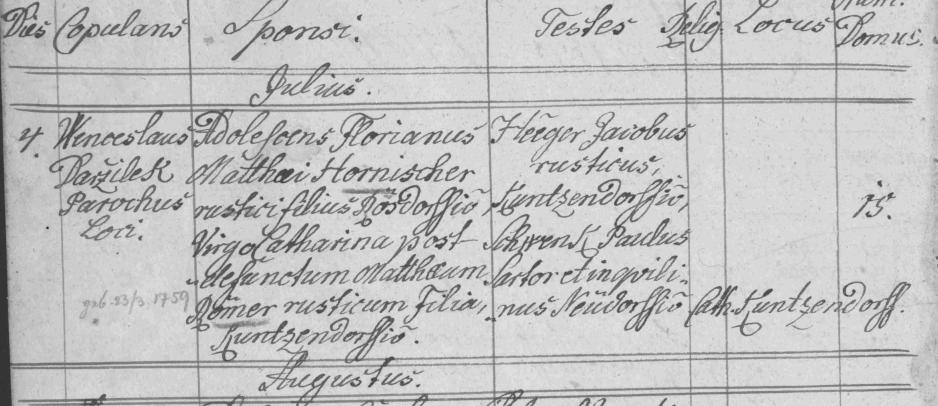 Dies Copulans Sponsi. Testes Relig. Locus Domus.
Julius.
4. Wenceslaus Adolescens Florianus Heeger Jacobus
Daržilek Matthæi Hornischer rusticus,
Parochus rustici filius Rosdorffiō, Kuntzendorffiō, 15.
Loci. Virgo Catharina post Schwenk Paulus
defunctum Matthæum Sartor et inqvili-
geb. 23/3. 1759 Römer rusticum Filia, nus Neudorffiō Cath. Kuntzendorff.
Kuntzendorffiō.
Augustus.